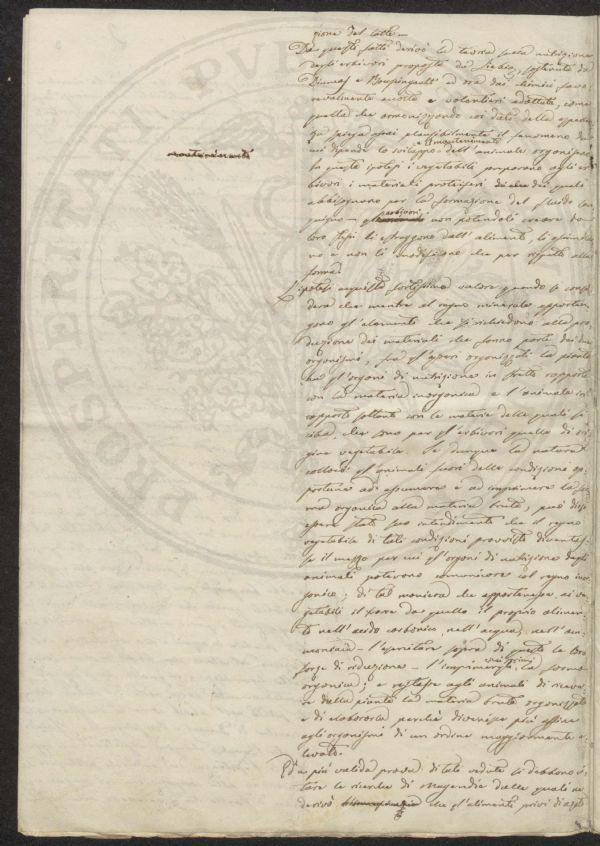 zione del latte.—
Da questi fatti derivò la teoria sulla nutrizione
degli erbivori proposta da Liebig, sostenuta da
Dumas e Boussingault ed ora dai chimici favo
revolmente accolta e volontieri adottata, come
quella che armonizzando coi dati della sperien
za spiega assai plausibilmente il fenomeno da
cui dipende lo sviluppo e il mantenimento dell'animale organismo
In questa ipotesi i vegetabili porgono agli er
bivori i materiali proteiferi dei quali
abbisognano per la formazione del fluido san
guigno — gli erbivori non potendoli creare da
loro stessi li estraggono dall'alimento li assimila
no e non li modificano che per rispetto alla
forma.
L'ipotesi acquista fortissimo valore quando si consi
dera che mentre al regno minerale apparten
gono gl'elementi che si richiedono alla pro
duzione dei materiali che fanno parte dei due
organismi, fra gl'esseri organizzati la pianta
ha gl'organi di nutrizione in stretto rapporto
con la materia inorganica e l'animale in
rapporto soltanto con le materie delle quali si
ciba, che sono per gl'erbivori quelle di ori
gine vegetabile. Se dunque la natura
collocò gl'animali fuori delle condizioni op
portune ad assumere e ad imprimere la for
ma organica alla materia bruta, può dirsi
essere stato suo intendimento che il regno
vegetabile di tali condizioni provvisto diventas
se il mezzo per cui gl'organi di nutrizione degli
animali potevano comunicare col regno inor
ganico; di tal maniera che appartenesse ai ve
getabili il trarre da quello il proprio alimen
to nell'acido carbonico, nell'acqua, nell'am
moniaca — l'esercitare sopra di questi la loro
forza di riduzione — l'imprimere la forma
organica; e restasse agli animali di riceve
re dalla pianta la materia bruta organizzata
e di elaborarla perchè divenisse più affine
agli organismi di un ordine maggiormente e
levato.
Ed a più valida prova di tali vedute si debbono ci
tare le ricerche di Magendie dalle quali ne
derivò che gl'alimenti privi di azoto